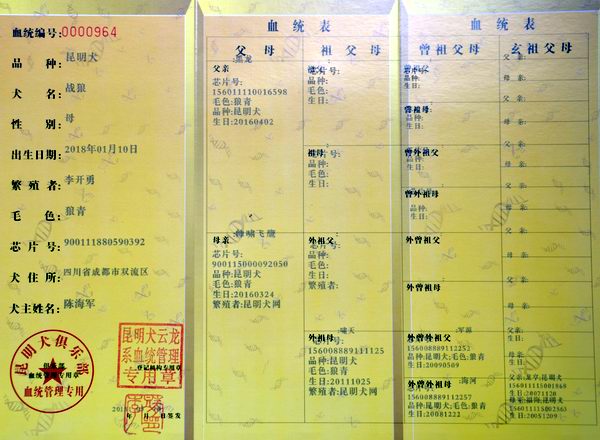 血统编号:0000964
品 种:昆明犬
犬 名:战狼
性 别:母
出生日期:2018年01月10日
繁殖者:李开勇
毛 色:狼青
芯片号:900111880590392
犬住所:四川省成都市双流区
犬主姓名:陈海军
昆明犬俱乐部
血统管理专用
昆明犬云龙
系血统管理
专用章
登记机构专用章
年 月 日签发
血 统 表
父 母
祖 父 母
父亲:黑龙
芯片号:
156011110016598
毛色:狼青
品种:昆明犬
生日:20160402
母亲:海啸飞鹰
芯片号:
900115000092050
品种:昆明犬
毛色:狼青
生日:20160324
繁殖者:昆明犬网
祖父:
芯片号:
毛色:
品种:
生日:
祖母:
芯片号:
品种:
毛色:
生日:
外祖父:
芯片号:
品种:
毛色:
生日:
繁殖者:
外祖母:啸天
芯片号:
156008889111125
品种:昆明犬
毛色:狼青
生日:20111025
繁殖者:昆明犬网
血 统 表
曾祖父母
玄祖父母
曾祖父:
品种:
生日:
曾祖母:
品种:
生日:
曾外祖父
品种:
生日:
曾外祖母
品种:
生日:
外曾祖父
外曾祖母
外曾外祖父:军源
156008889112252
品种:昆明犬;毛色:狼青
生日:20090509
外曾外祖母:海河
芯片号:
156008889112257
品种:昆明犬;毛色:狼青
生日:20081222
父亲:
母亲:
父亲:
母亲:
父亲:
母亲:
父亲:
母亲:
父亲:
母亲:
父亲:
母亲:
父亲:
母亲:
生日:20071120
生日:20051209